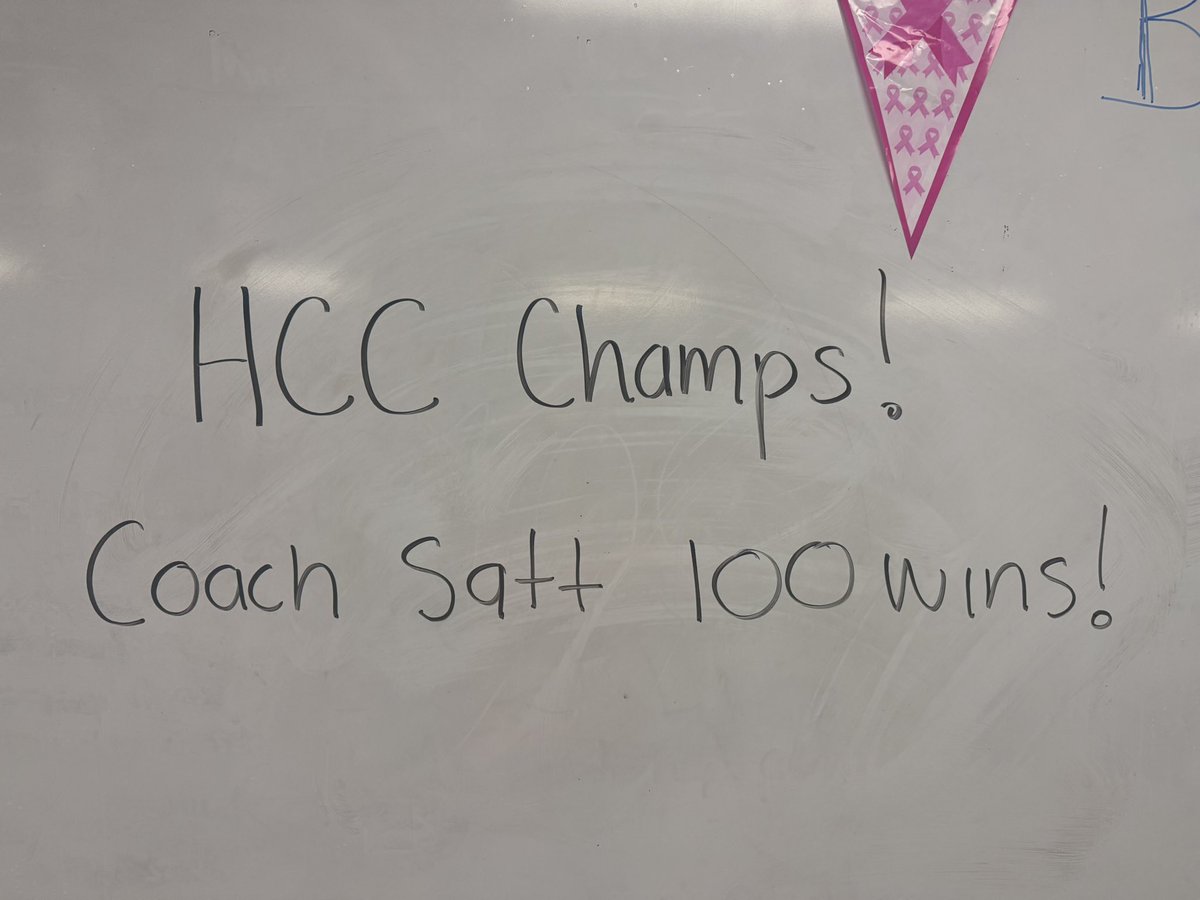 B
HCC Champs!
Coach Satt 100 wins!